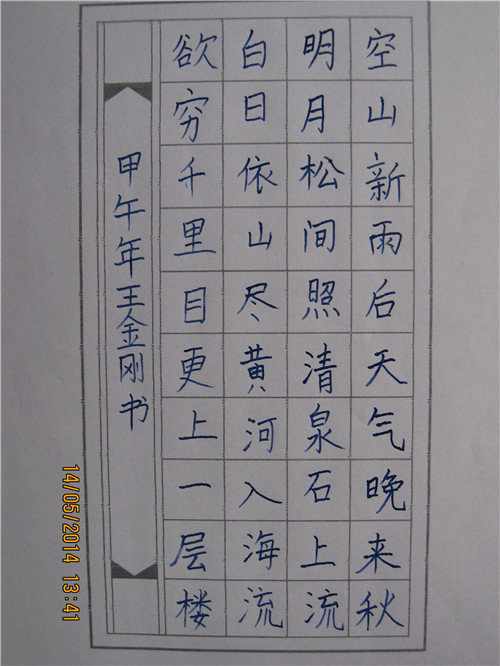 空山新雨后天气晚来秋
明月松间照清泉石上流
白日依山尽黄河入海流
欲穷千里目更上一层楼
甲午年王金刚书
14/05/2014 13:41